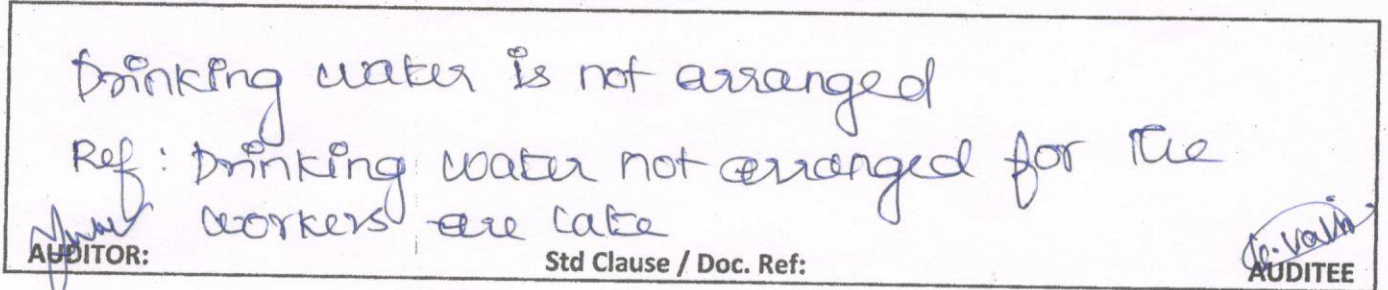 Drinking water is not arranged
Ref: Drinking water not arranged for the
workers are
AUDITOR: Std Clause / Doc. Ref: AUDITEE